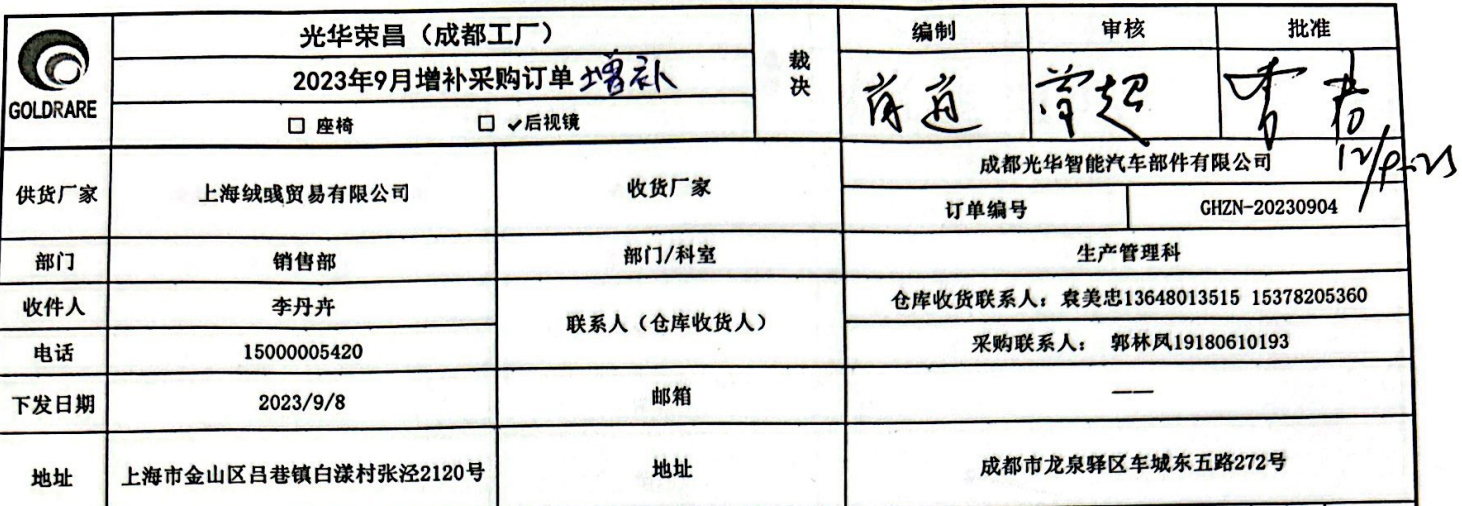 GOLDRARE
光华荣昌（成都工厂）
2023年9月增补采购订单 增补
□ 座椅 □ ✓后视镜
裁决
编制 审核 批准
供货厂家 上海绒彧贸易有限公司 收货厂家 成都光华智能汽车部件有限公司
订单编号 GHZN-20230904
部门 销售部 部门/科室 生产管理科
收件人 李丹卉 联系人（仓库收货人） 仓库收货联系人：袁美忠13648013515 15378205360
电话 15000005420 采购联系人： 郭林凤19180610193
下发日期 2023/9/8 邮箱 ——
地址 上海市金山区吕巷镇白漾村张泾2120号 地址 成都市龙泉驿区车城东五路272号